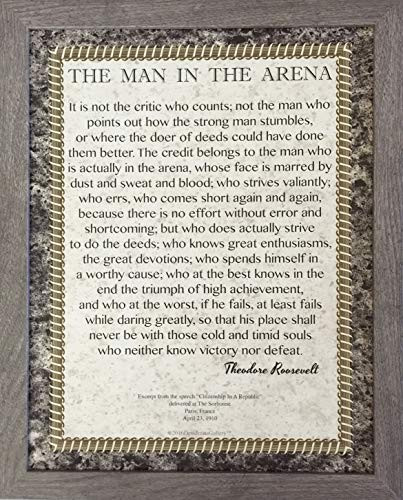 THE MAN IN THE ARENA
It is not the critic who counts; not the man who
points out how the strong man stumbles,
or where the doer of deeds could have done
them better. The credit belongs to the man who
is actually in the arena, whose face is marred by
dust and sweat and blood; who strives valiantly;
who errs, who comes short again and again,
because there is no effort without error and
shortcoming; but who does actually strive
to do the deeds; who knows great enthusiasms,
the great devotions; who spends himself in
a worthy cause; who at the best knows in the
end the triumph of high achievement,
and who at the worst, if he fails, at least fails
while daring greatly, so that his place shall
never be with those cold and timid souls
who neither know victory nor defeat.
Theodore Roosevelt
Excerpt from the speech "Citizenship In A Republic"
delivered at The Sorbonne
Paris, France
April 23, 1910